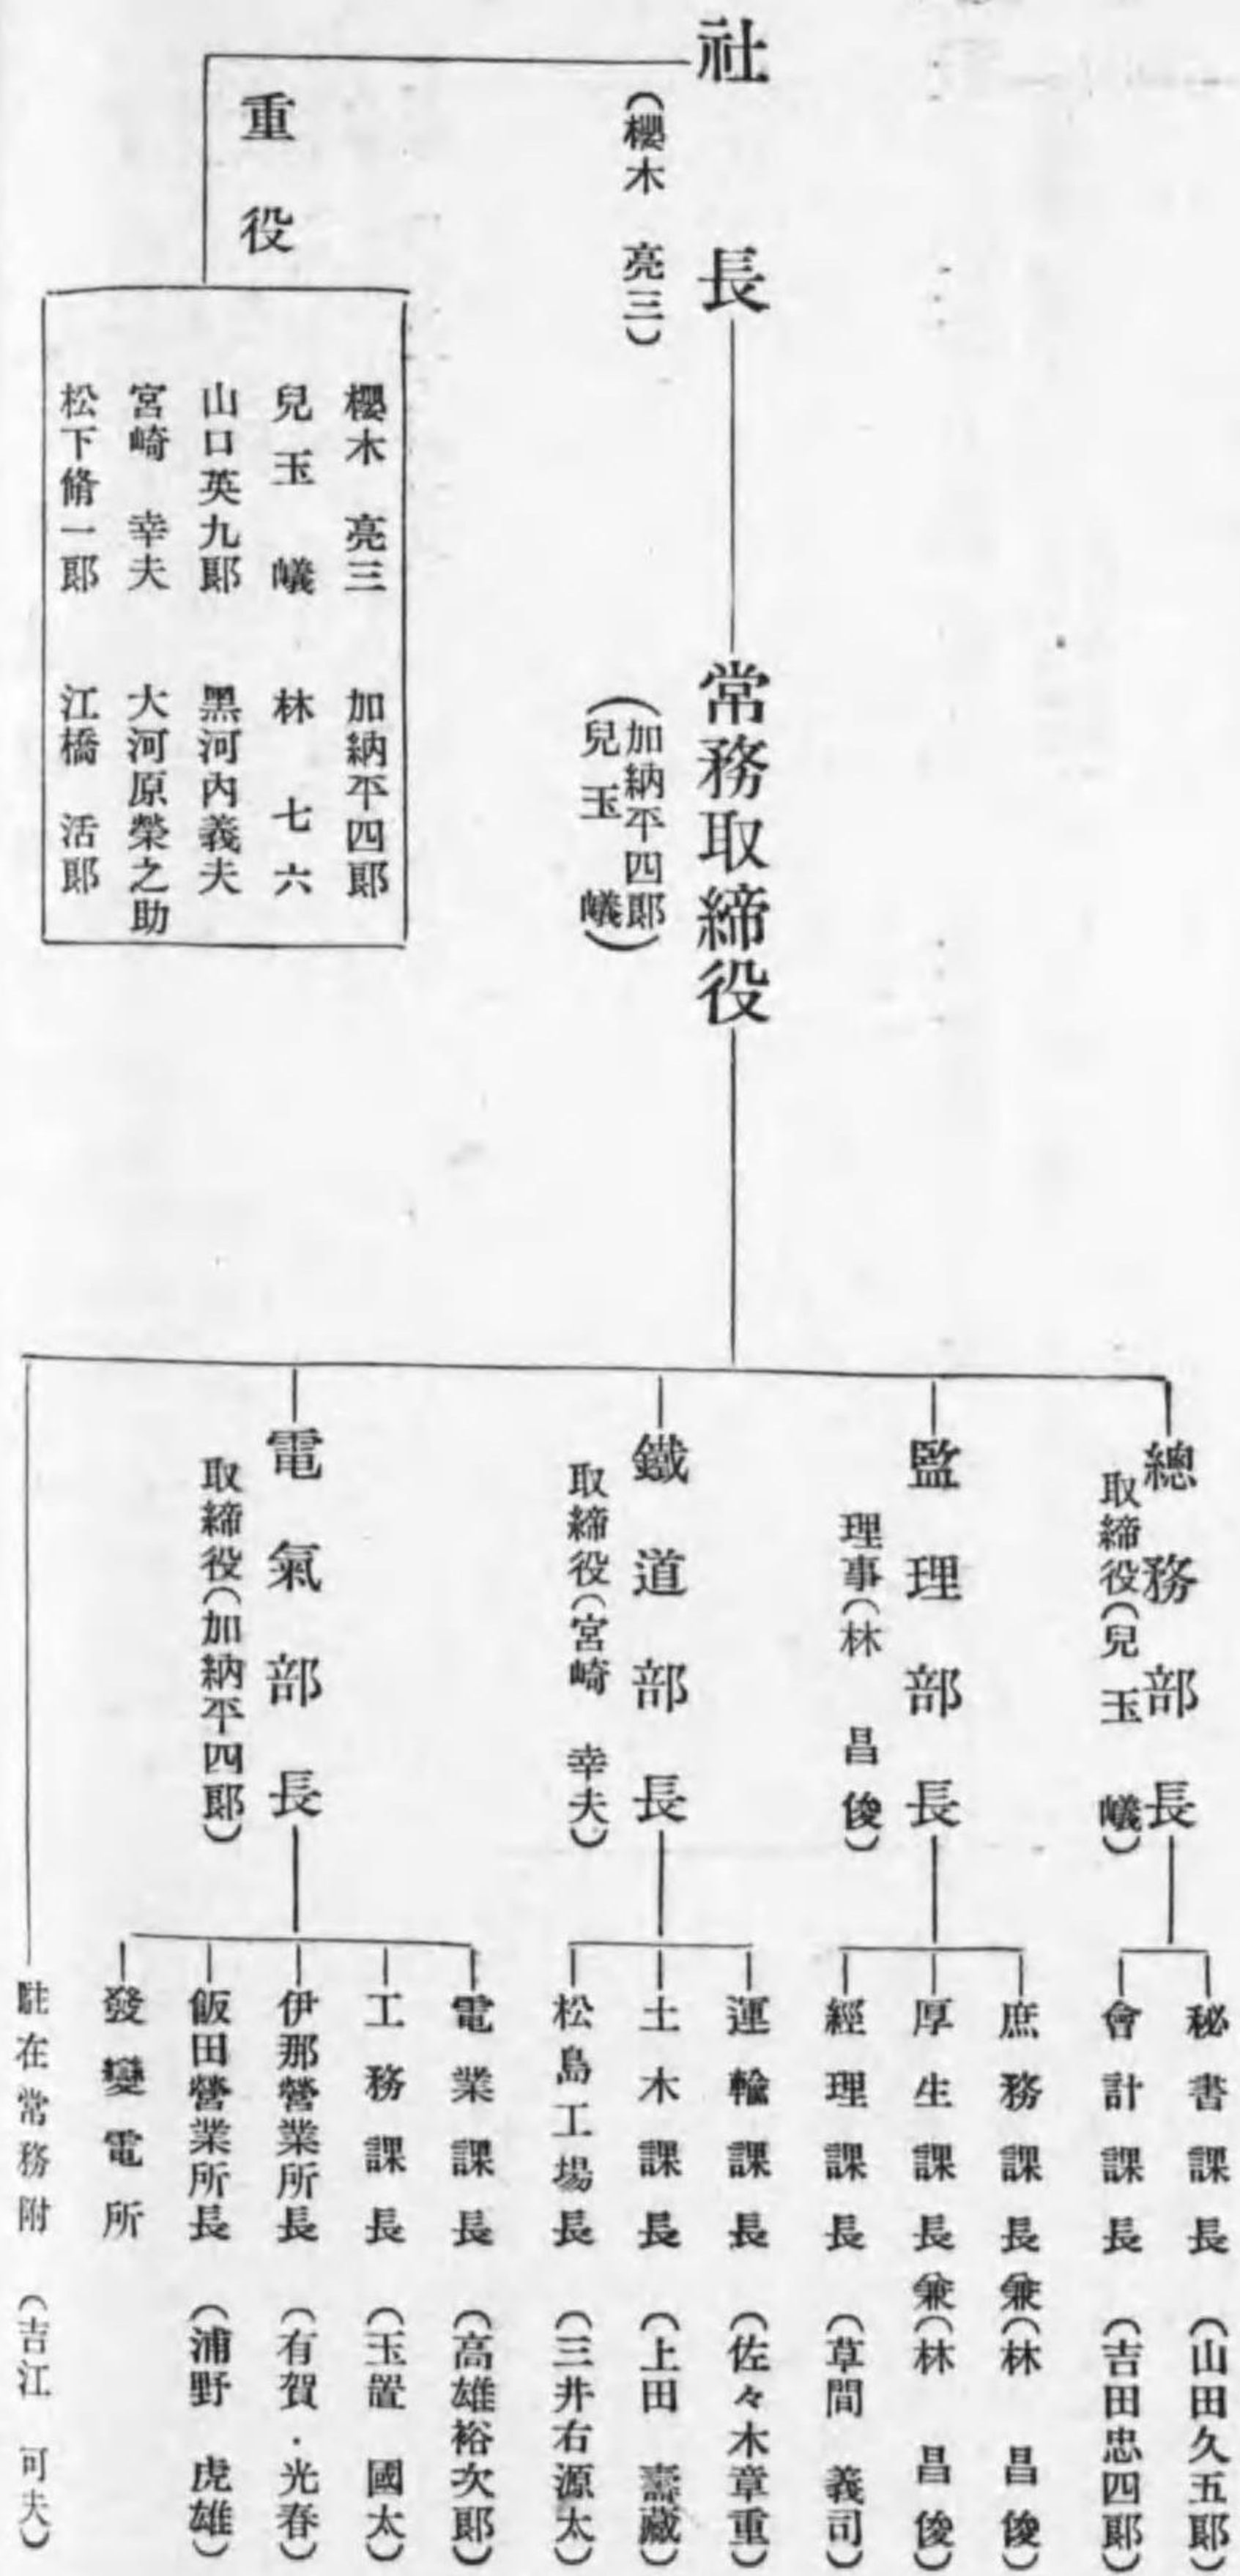 社長
（櫻木亮三）
重役
櫻木亮三　加納平四郎
兒玉㠖　林七六
山口英九郎　黑河內義夫
宮崎幸夫　大河原榮之助
松下脩一郎　江橋活郎
常務取締役
（加納平四郎
兒玉㠖）
總務部長
取締役（兒玉㠖）
秘書課長（山田久五郎）
會計課長（吉田忠四郎）
監理部長
理事（林昌俊）
庶務課長兼（林昌俊）
厚生課長兼（林昌俊）
經理課長（草間義司）
鐵道部長
取締役（宮崎幸夫）
運輸課長（佐々木章重）
土木課長（上田壽藏）
松島工場長（三井右源太）
電氣部長
取締役（加納平四郎）
電業課長（高雄裕次郎）
工務課長（玉置國太）
伊那營業所長（有賀・光春）
飯田營業所長（浦野虎雄）
發變電所
駐在常務附（吉江可夫）